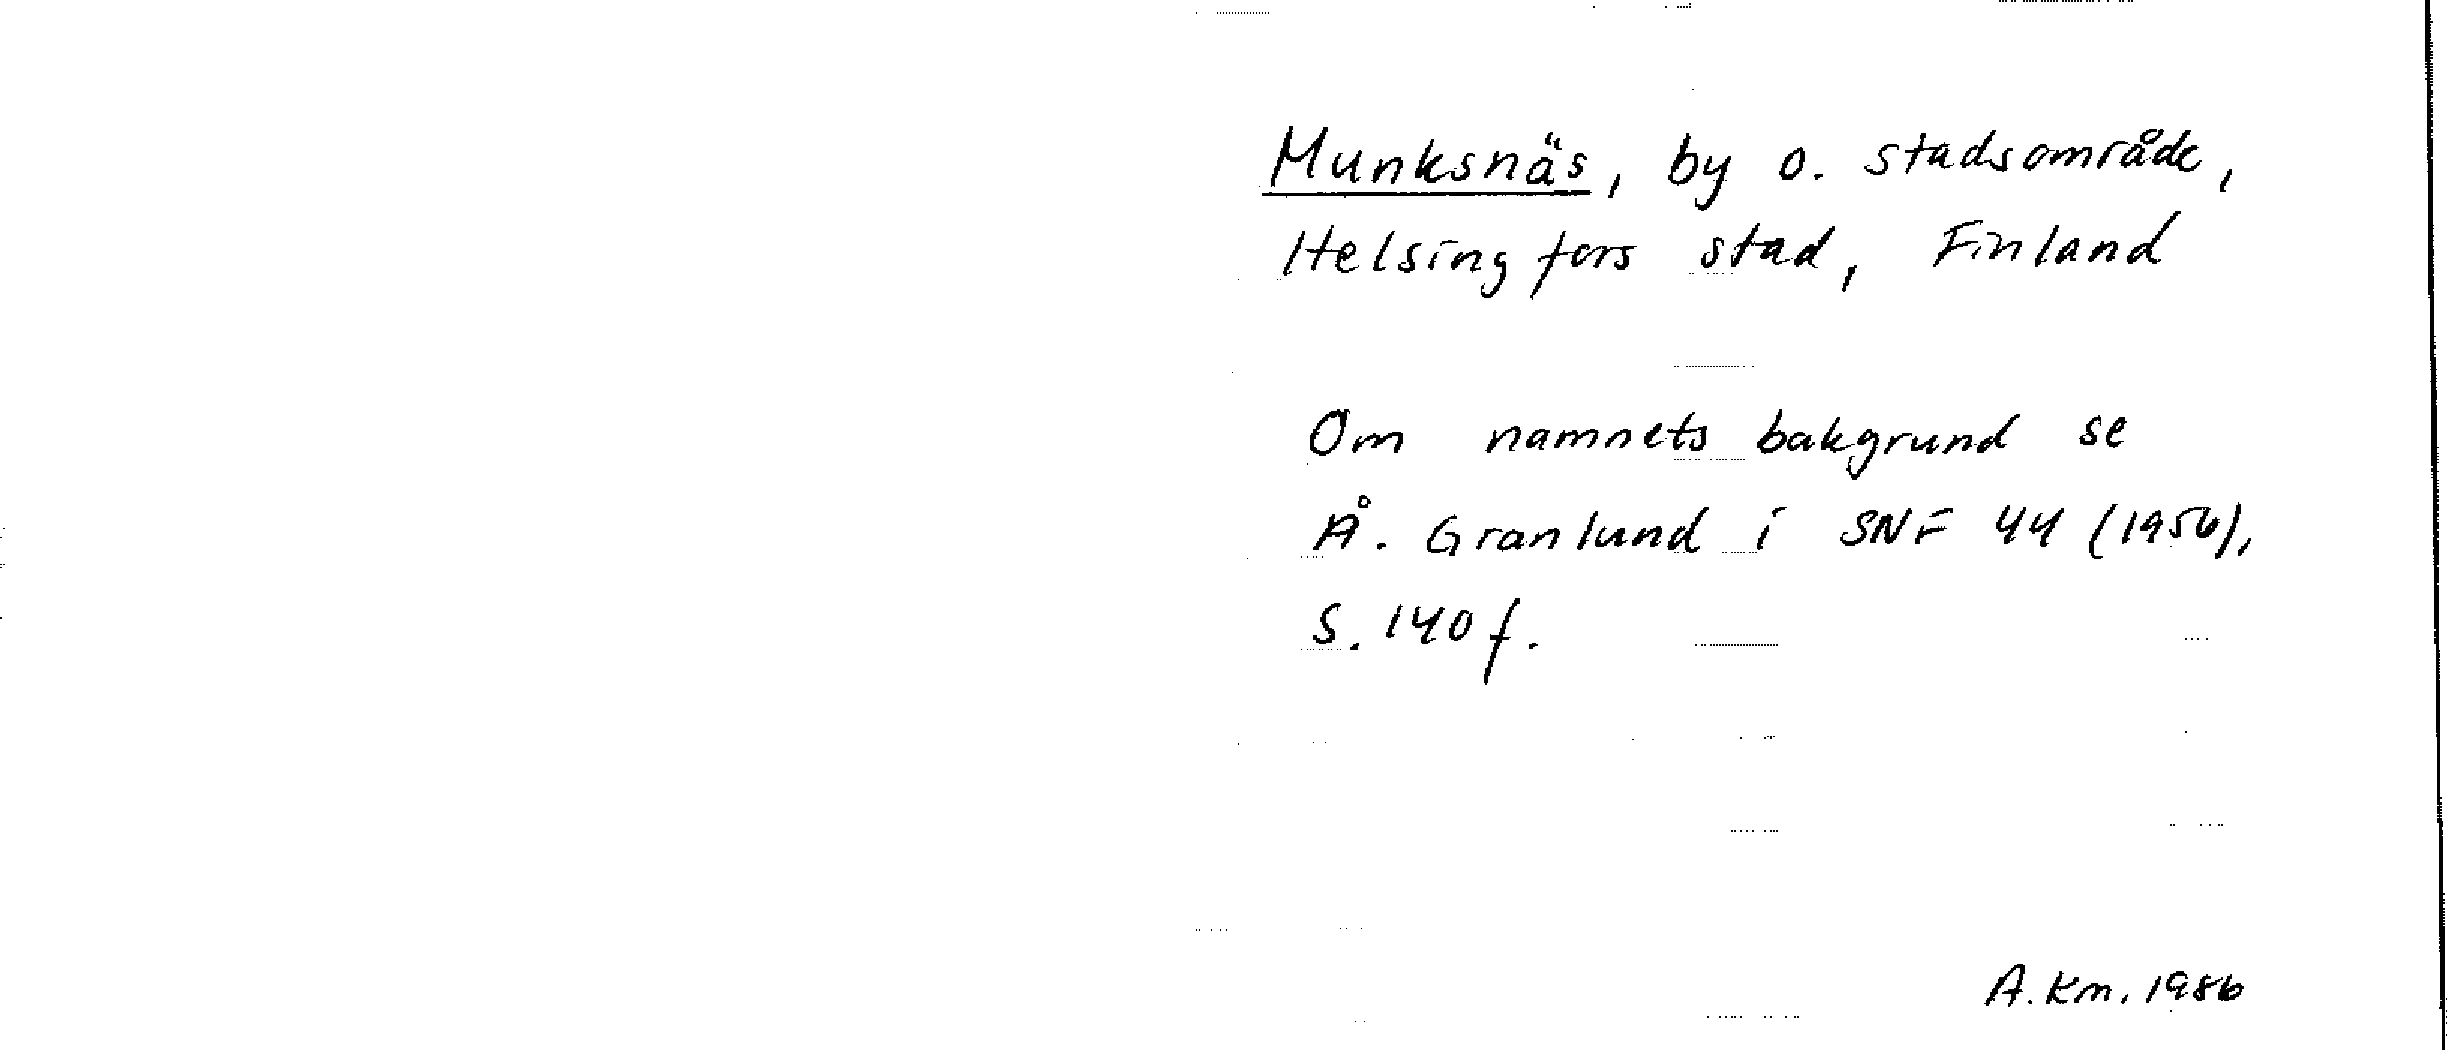 Munksnäs, by o. stadsområde,
Helsingfors stad, Finland
Om namnets bakgrund se
Å. Granlund i SNF 44 (1956),
S. 140 f.
A. Km. 1986